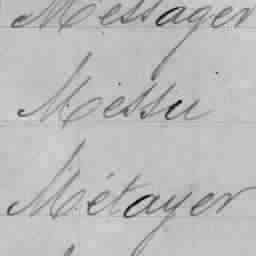 Messager
Messu
Métayer